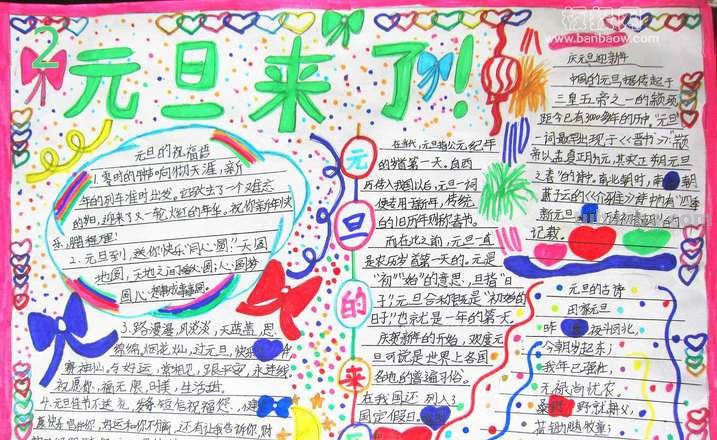 2
元旦来了!
www.banbaow.com
元旦的祝福语
1.零时的脚步响彻天涯,新
年的列车准时出发。它吹去了一个难忘
的
迎来了又一轮火红的年华。祝你新年快
2.元旦到,送你快乐“同心圆”:天圆
地圆,天地之间
人圆;心圆梦
圆
3.路漫漫,风淡淡,天蓝蓝,思
绵绵,烟花灿,过元旦,快乐
祝愿你,福无限,
生活甜
4.元旦佳节不送礼,
短信祝福您
元旦的来
在古代,元旦指公元纪年
的岁首第一天。自西
历传入我国以后,元旦一词
便专用于新年,传统
的旧历年则称春节。
而在此之前,元旦一直
是农历岁首第一天的。元是
“初”“始”的意思,旦指“日
子”,元旦合称即是“初始的
日子”也就是一年的第一天。
庆贺新年的开始,欢度元
旦可说是世界上各国
各地的普遍习俗。
在我国还列入了
国定假日。
庆元旦迎新年
中国的元旦,据传起于
三皇五帝之一的颛顼
距今已有3000多年的历史。“元旦”
一词最早出现于<<晋书>>:“颛
帝以孟春正月为元,其实正朔元旦
之春”的诗中。南北朝时,南
朝
萧子云的<<介雅>>诗中有“四季
新元旦
记载。
元旦的古诗
田家元旦
昨
夜斗回北,
今朝岁起东;
我年已强壮,
无禄尚忧农。
桑
野就耕父,
荷锄随牧童;